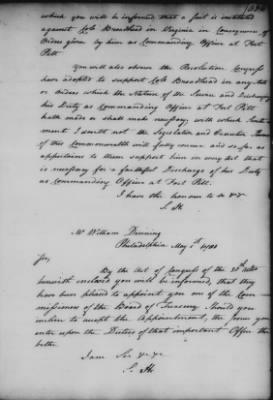 which you will be informed that a suit is instituted
against Colo Broadhead in Virginia in Consequence of
Orders given by him as Commanding Officer at Fort
Pitt.
You will also observe the Resolution Congress
have adopted to support Colo Broadhead in any Acts
or Orders which the Nature of the Service and Discharge of
his Duty as Commanding Officer at Fort Pitt
hath made or shall make necessary, with which
I doubt not the Legislative and Executive
of this Commonwealth will fully concur and so far as
appertains to them support him in every Act that
is necessary for a faithful Discharge of his Duty
as Commanding Officer at Fort Pitt.
I have the honour to be &c
S. H.
Mr William Denning
Philadelphia May 2d 1781
Sir,
By the Act of Congress of the
herewith enclosed you will be informed, that they
have been pleased to appoint you one of the Com-
missioners of the Board of Treasury. Should you
incline to accept the Appointment, the sooner you
enter upon the Duties of that important Office the
better.
I am Sir &c &c
S. H.